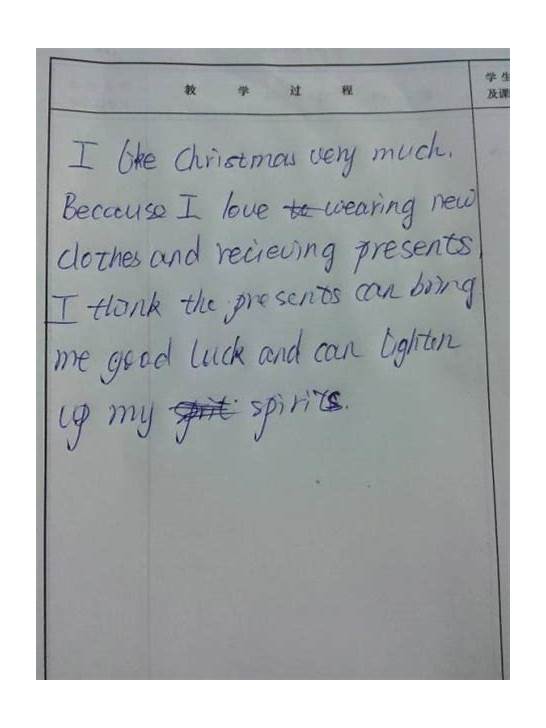 教 学 过 程
学生
及课
I like Christmas very much.
Because I love to wearing new
clothes and recieving presents.
I think the presents can bring
me good luck and can lighten
up my spirits.